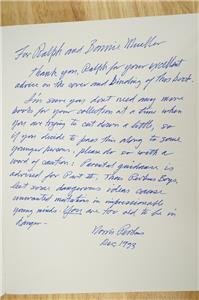 For Ralph and Bonnie Mueller
Thank you, Ralph for your excellent
advice on the cover and binding of this book.
I'm sure you don't need any more
books for your collection at a time when
you are trying to cut down a little, so
if you decide to pass this along to some
younger person, please do so with a
word of caution: Parental guidance is
advised for Part II, Those Perkins Boys,
lest some dangerous ideas cause
unwanted mutations in impressionable
young minds. You are too old to be in
danger.
Perkins
Dec, 1993